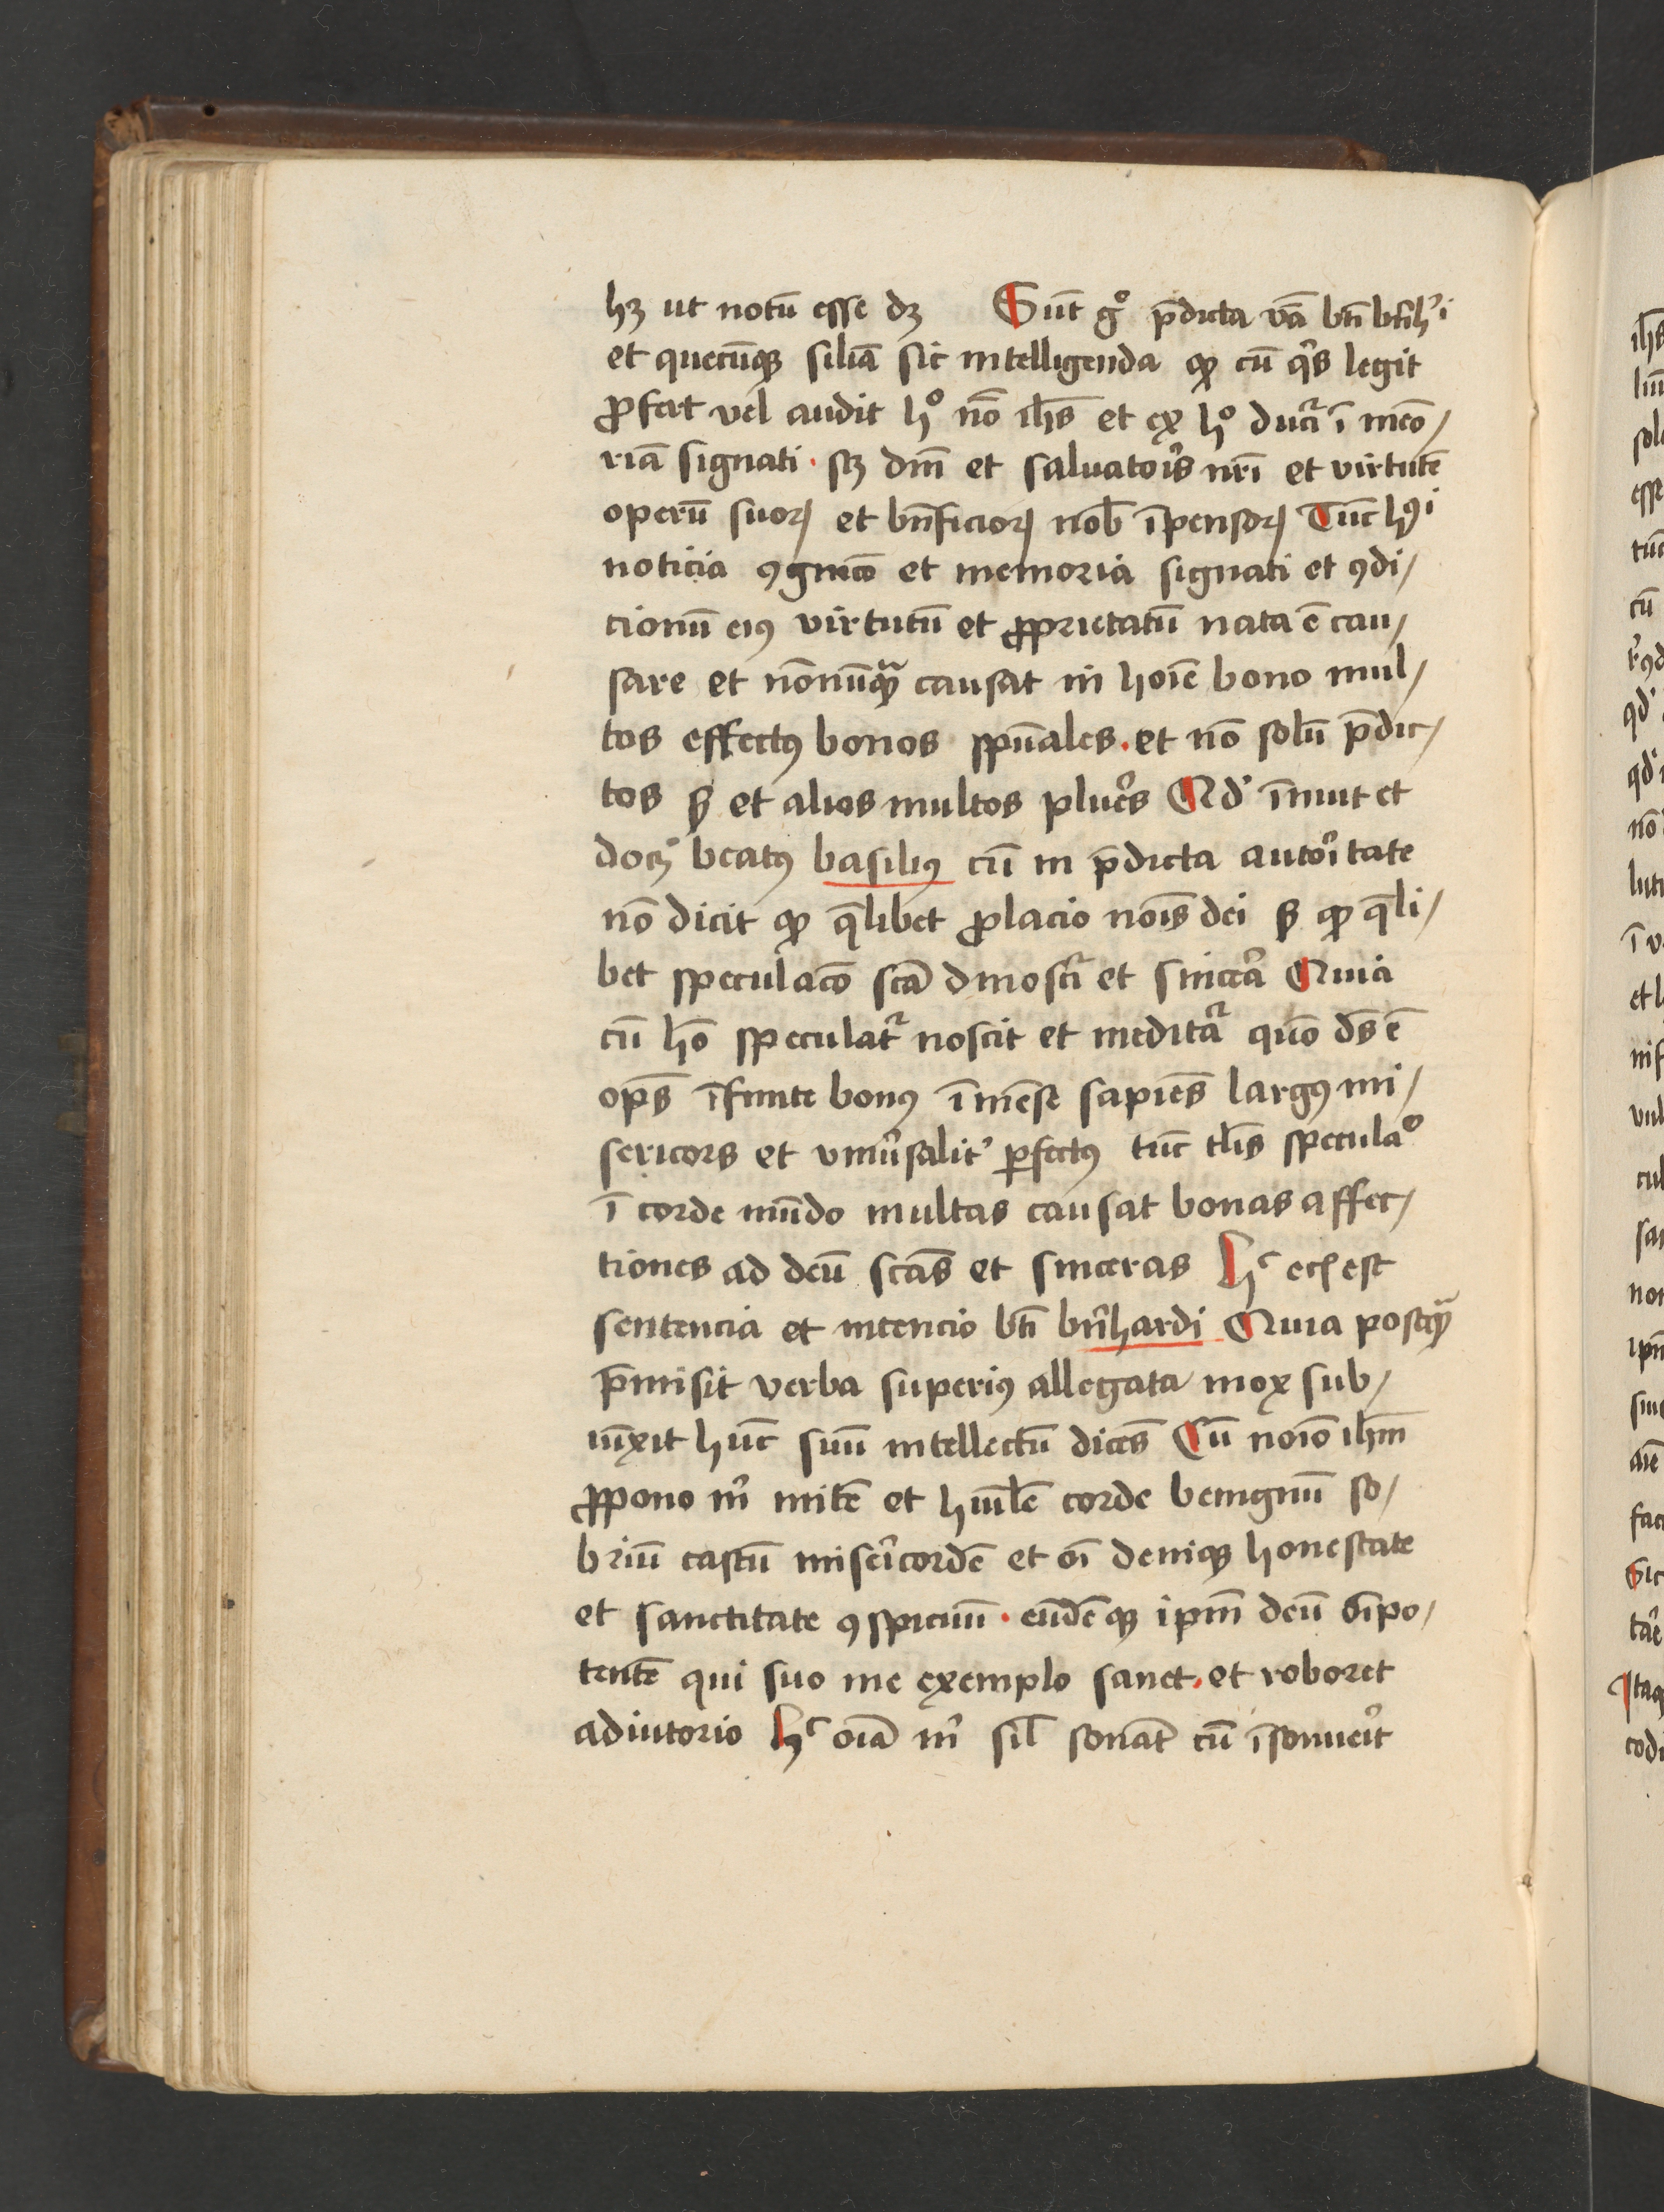 hꝫ ut notū esse dꝫ Sūt gͦ p̄dicta v̄ba bt̄i bern̄hꝰi
et quecūqꝫ silīa sic intelligenda ꝙ cū qͥs legit
ꝓfert vel audit hͦ nō ih̄s et ex hͦ ducͥ ī meō⸗
riā signati · scꝫ dn̄i et saluatoris nr̄i et virtutē
operū suoꝝ et bn̄ficioꝝ nob̄ īpensoꝝ Tūc hꝰi
noticia ꝯgnicō et memoria signati et ꝯdi⸗
cionū eiꝰ virtutū et ꝓprietatū nata ē cau⸗
sare et nōnūqᷓ causat in hoīe bono mul⸗
tos effectꝰ bonos spūales · et nō solū p̄dic⸗
tos sꝫ et alios multos plures Qd' īnuit et
docꝫ beatꝰ basiliꝰ cū in p̄dicta autoritate
nō dicit ꝙ q̄libet ꝓlacio noīs dei sꝫ ꝙ q̄li⸗
bet speculacō scā dinoscr̄ et sincera Quia
cū hō speculatᷣ noscit et meditaᷣ quō ds̄ ē
ops̄ īfinite bonꝰ īmēse sapiēs largꝰ mi⸗
sericors et vniūsalit' ꝑfectꝰ tūc tl̄is speculaͦ
ī corde mūdo multas causat bonas affec⸗
tiones ad deū scās et sinceras Hᶜ ecī est
sentencia et intencio bt̄i bern̄hardi Quia postqᷓ
p̄misit verba superiꝰ allegata mox sub⸗
iūxit hūc suū intellectū dicēs Cū noīo ih̄m
ꝓpono mͥ mitē et huīlē corde benignū so⸗
briū castū misericordē et oī deniqꝫ honestate
et sanctitate ꝯspicuū · eūdēqꝫ ipm̄ deū oīpo⸗
tentē qui suo me exemplo sanet · et roboret
adiutorio Hᶜ oīa mͥ sil̄ sonāt cū īsonuerͥt